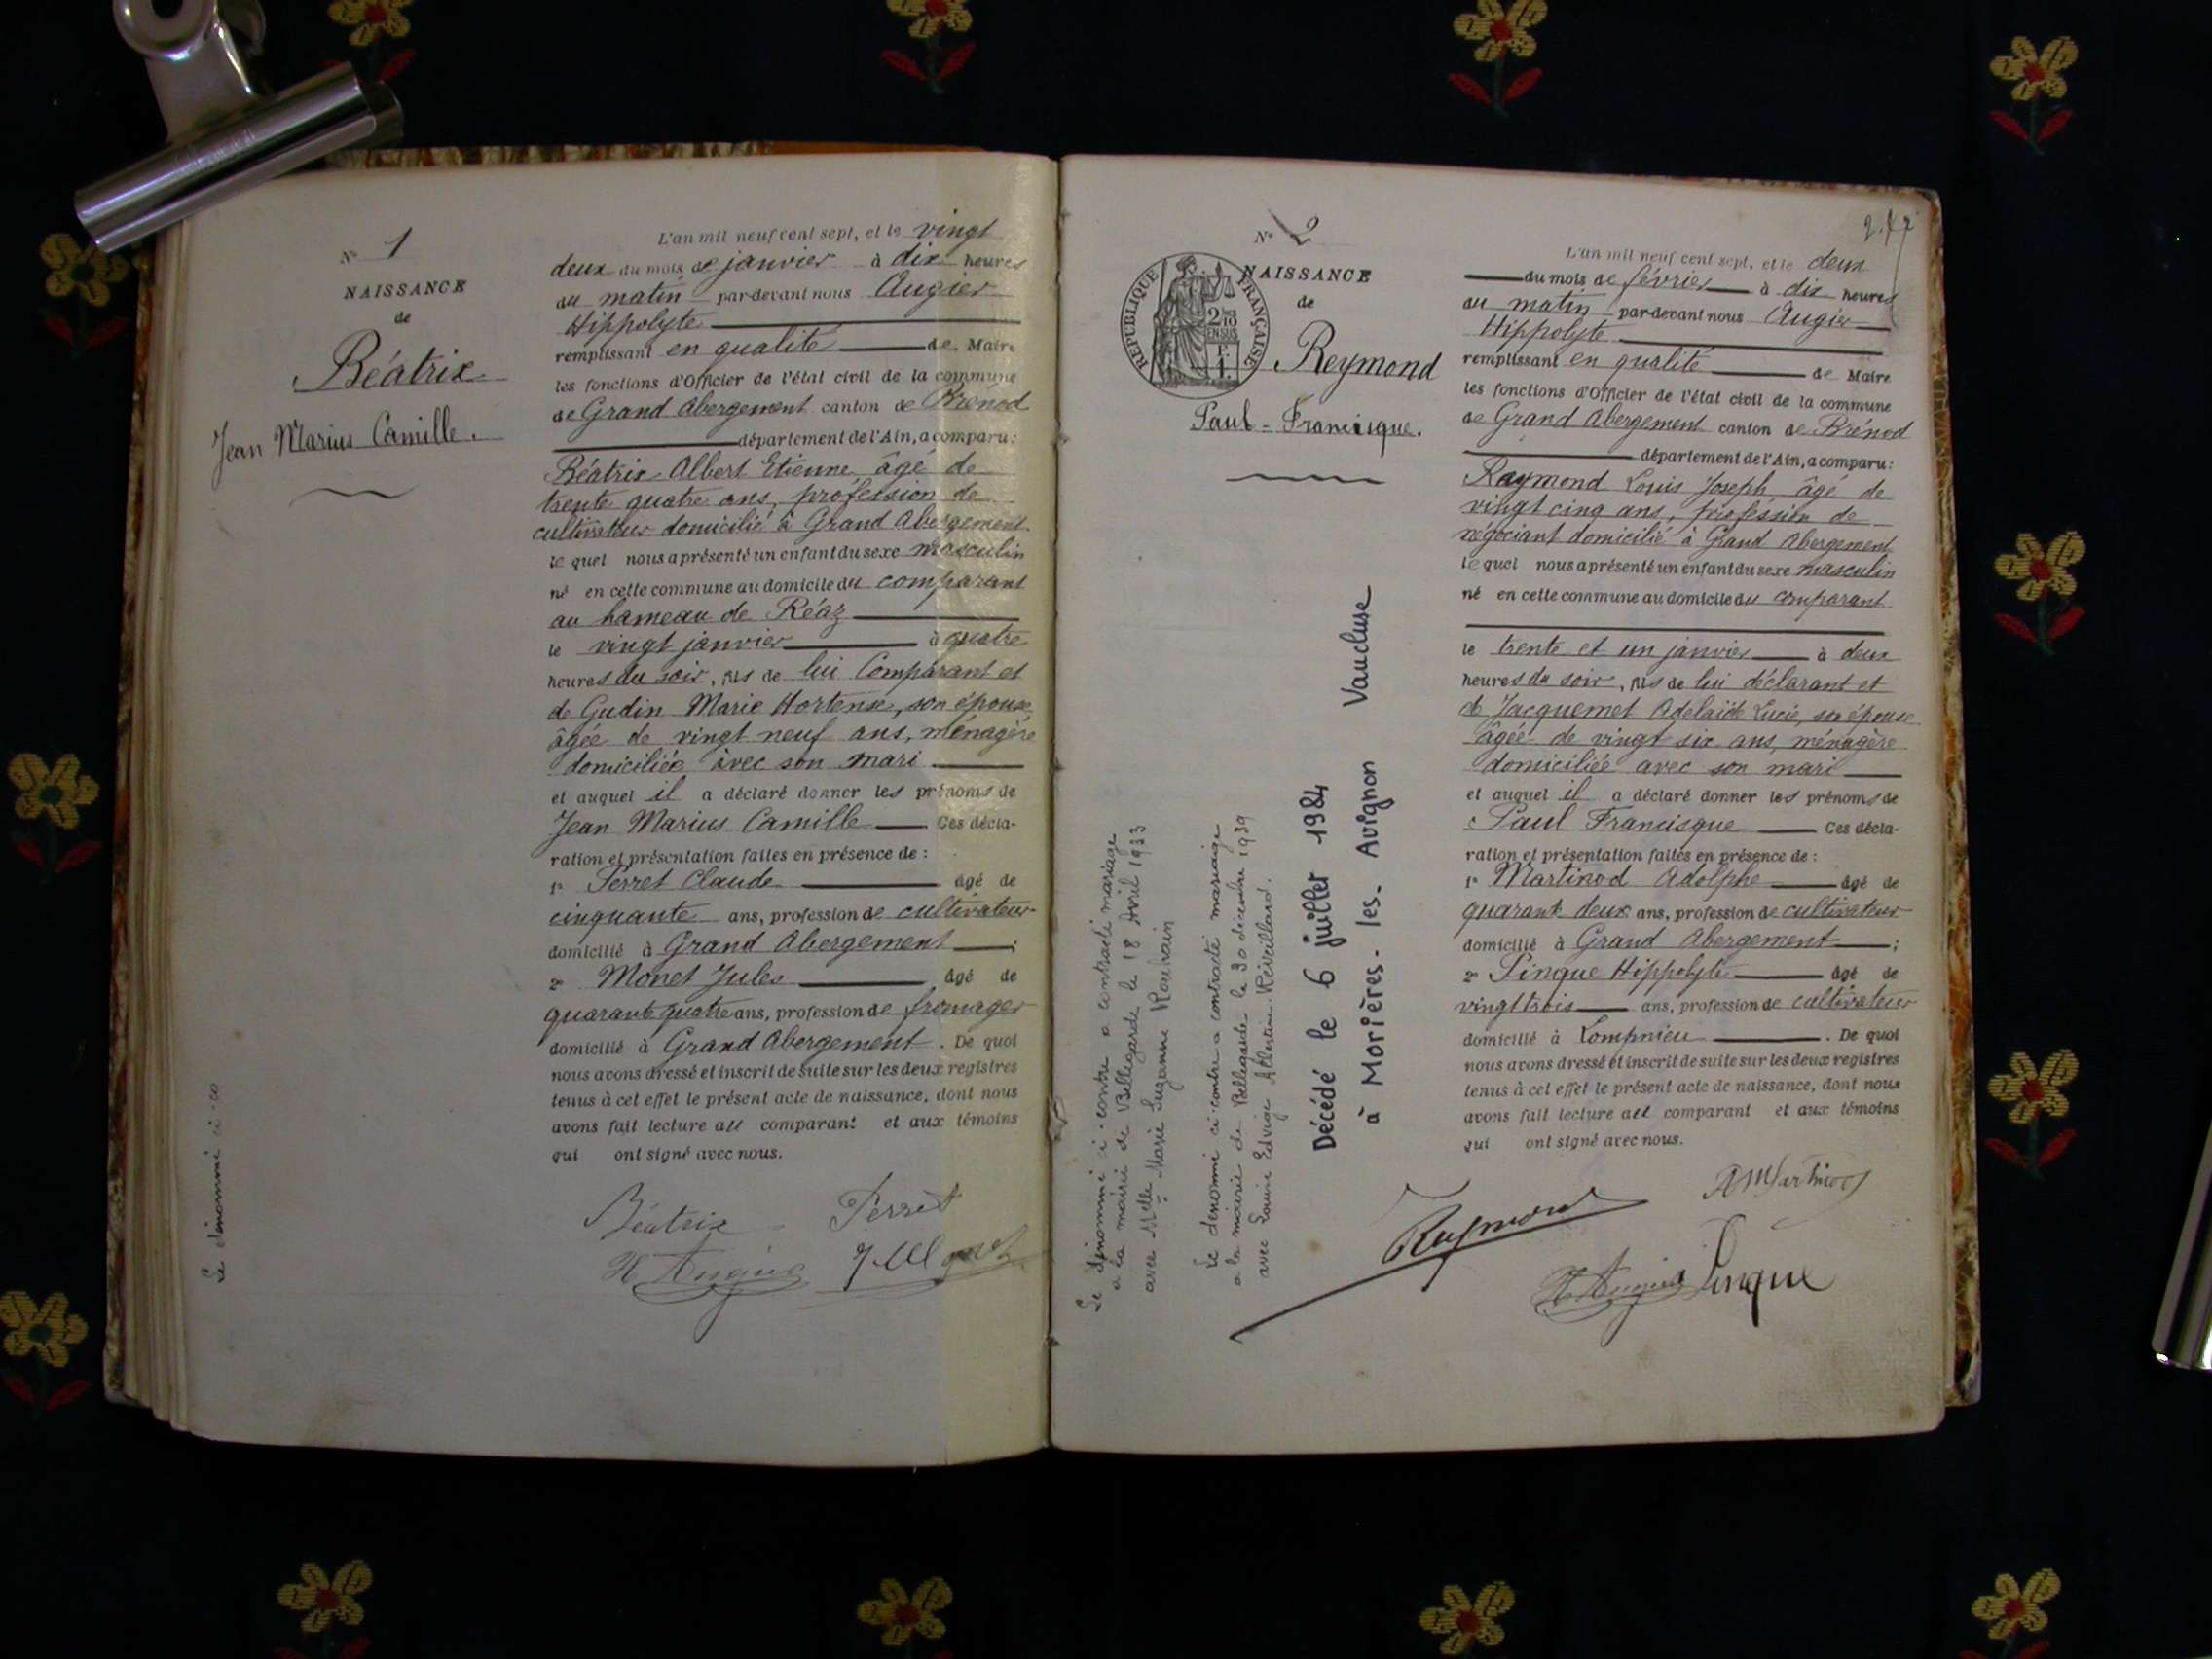 N° 1
NAISSANCE
de
Béatrix
Jean Marius Camille.
Le dénommé ci-co
L'an mil neuf cent sept, et le vingt
deux du mois de janvier à dix heures
du matin par-devant nous Augier
Hippolyte
remplissant en qualité de Maire
les fonctions d'Officier de l'état civil de la commune
de Grand Abergement canton de Brenod
département de l'Ain, a comparu:
Béatrix Albert Etienne, âgé de
trente quatre ans, profession de
cultivateur domicilié à Grand Abergement
le quel nous a présenté un enfant du sexe masculin
né en cette commune au domicile du comparant
au hameau de Réaz
le vingt janvier à quatre
heures du soir, fils de lui Comparant et
de Gudin Marie Hortense, son épouse
âgée de vingt neuf ans, ménagère
domiciliée avec son mari
et auquel il a déclaré donner les prénoms de
Jean Marius Camille Ces décla-
ration et présentation faites en présence de :
1° Perret Claude âgé de
cinquante ans, profession de cultivateur
domicilié à Grand Abergement ;
2° Monet Jules âgé de
quarante quatre ans, profession de fromager
domicilié à Grand Abergement. De quoi
nous avons dressé et inscrit de suite sur les deux registres
tenus à cet effet le présent acte de naissance, dont nous
avons fait lecture au comparant et aux témoins
qui ont signé avec nous.
Béatrix Perret
H Augier J Monet
N° 2
NAISSANCE
de
RÉPUBLIQUE FRANÇAISE
2/10
EN SUS
Reymond
Paul-Francisque.
Le dénommé ci-contre a contracté mariage
à la mairie de Bellegarde le 18 Avril 1933
avec Melle Marie Suzanne
Le dénommé ci-contre a contracté mariage
à la mairie de Bellegarde le 30 décembre 1939
avec Louise Edwige Albertine Réveillard.
Décédé le 6 juillet 1984
à Morières-les-Avignon Vaucluse
2.47
L'an mil neuf cent sept, et le deux
du mois de février à dix heures
du matin par-devant nous Augier
Hippolyte
remplissant en qualité de Maire
les fonctions d'Officier de l'état civil de la commune
de Grand Abergement canton de Brénod
département de l'Ain, a comparu:
Raymond Louis Joseph, âgé de
vingt cinq ans, profession de
négociant domicilié à Grand Abergement
le quel nous a présenté un enfant du sexe masculin
né en cette commune au domicile du comparant
le trente et un janvier à deux
heures du soir, fils de lui déclarant et
de Jacquemet Adelaïde Lucie, son épouse
âgée de vingt six ans, ménagère
domiciliée avec son mari
et auquel il a déclaré donner les prénoms de
Paul Francisque Ces décla-
ration et présentation faites en présence de :
1° Martinod Adolphe âgé de
quarante deux ans, profession de cultivateur
domicilié à Grand Abergement ;
2° Pingue Hippolyte âgé de
vingt trois ans, profession de cultivateur
domicilié à Lompnieu . De quoi
nous avons dressé et inscrit de suite sur les deux registres
tenus à cet effet le présent acte de naissance, dont nous
avons fait lecture au comparant et aux témoins
qui ont signé avec nous.
A Martinod
Raymond
H Augier Pingue